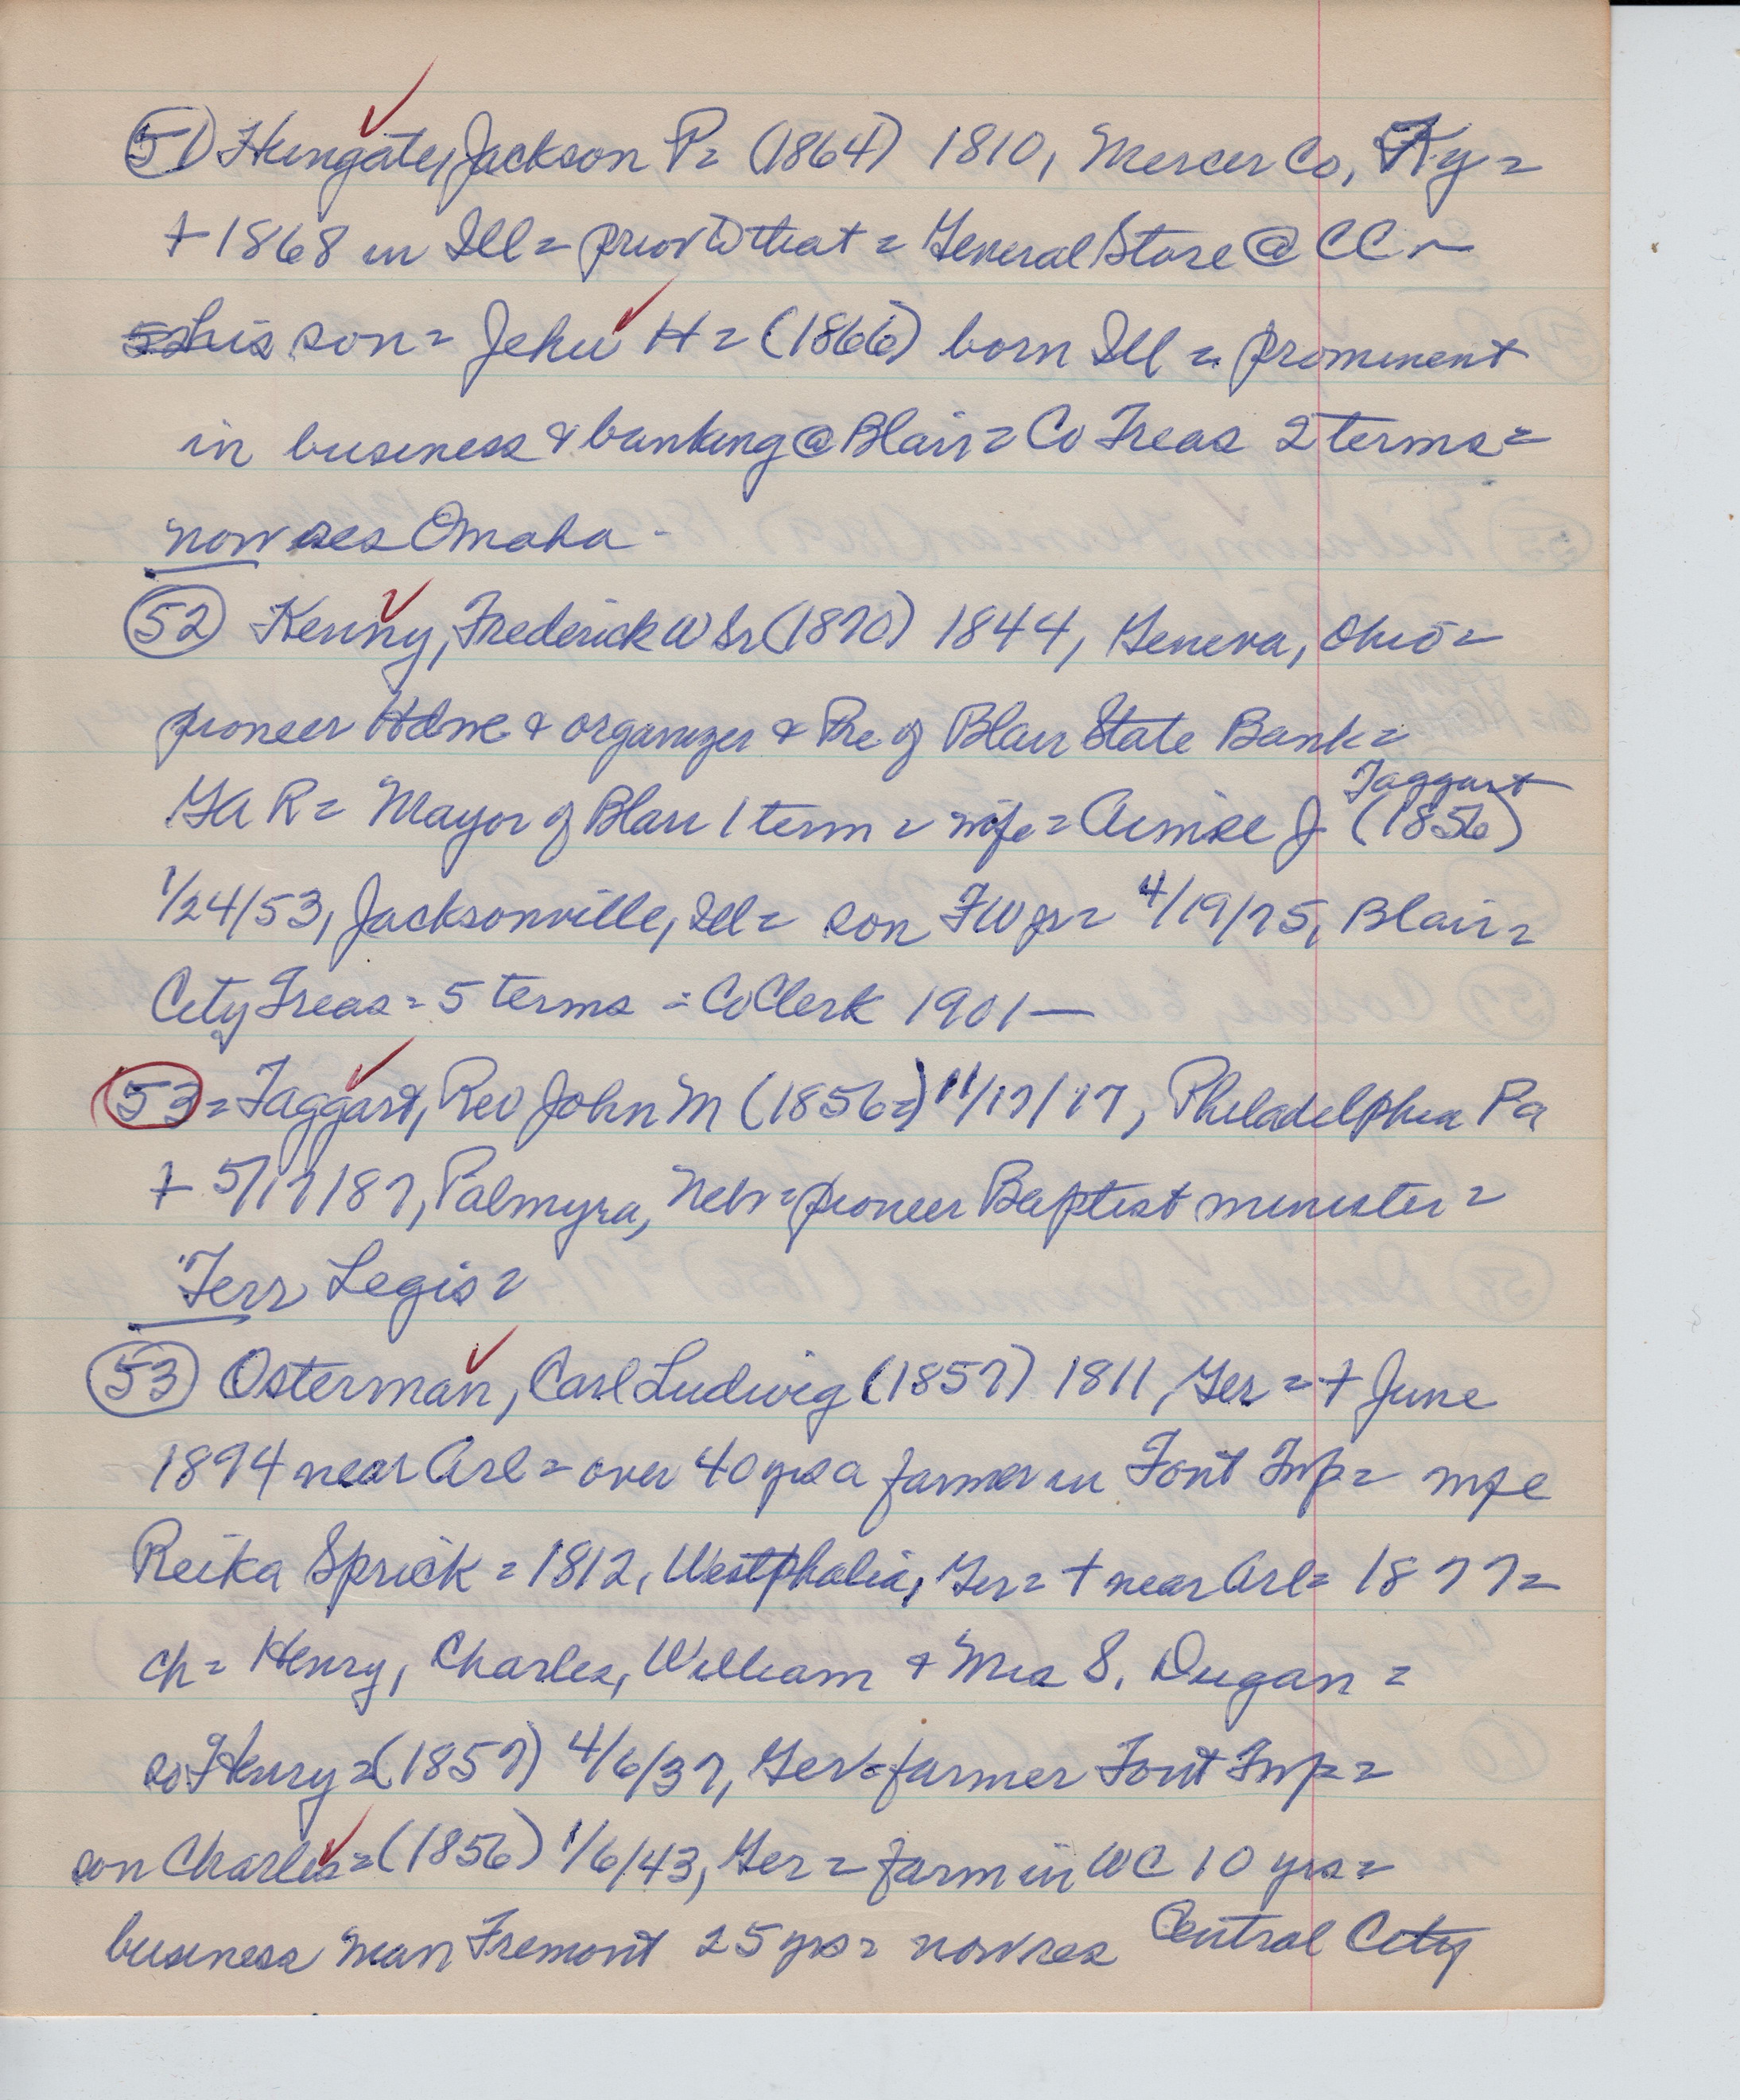 51) Hungate, Jackson P= (1864) 1810, Mercer Co, Ky=
+ 1868 in Ill = prior to that = General Store @ CC ~
his son = Jehu H = (1866) born Ill = prominent
in business & banking @ Blair = Co Treas 2 terms =
now res Omaha -
52 Kenny, Frederick W Sr (1870) 1844, Geneva, Ohio =
pioneer Hdwe & organizer & Pre of Blair State Bank =
GAR = Mayor of Blair 1 term = wife = Aimee J Taggart (1856)
1/24/53, Jacksonville, Ill = son FW jr = 4/19/75, Blair =
City Treas = 5 terms = Co Clerk 1901 —
53 = Taggart, Rev John M (1856=) 11/17/17, Philadelphia Pa
+ 5/17/87, Palmyra, Neb = pioneer Baptist minister =
Terr Legis =
53 Osterman, Carl Ludwig (1857) 1811, Ger = + June
1894 near Arl = over 40 yrs a farmer in Font Twp = wife
Reika Sprick = 1812, Westphalia, Ger = + near Arl = 1877 =
ch = Henry, Charles, William & Mrs S. Dugan =
so Henry = (1857) 4/6/37, Ger = farmer Font Twp =
son Charles = (1856) 1/6/43, Ger = farm in WC 10 yrs =
business man Fremont 25 yrs = now res Central City